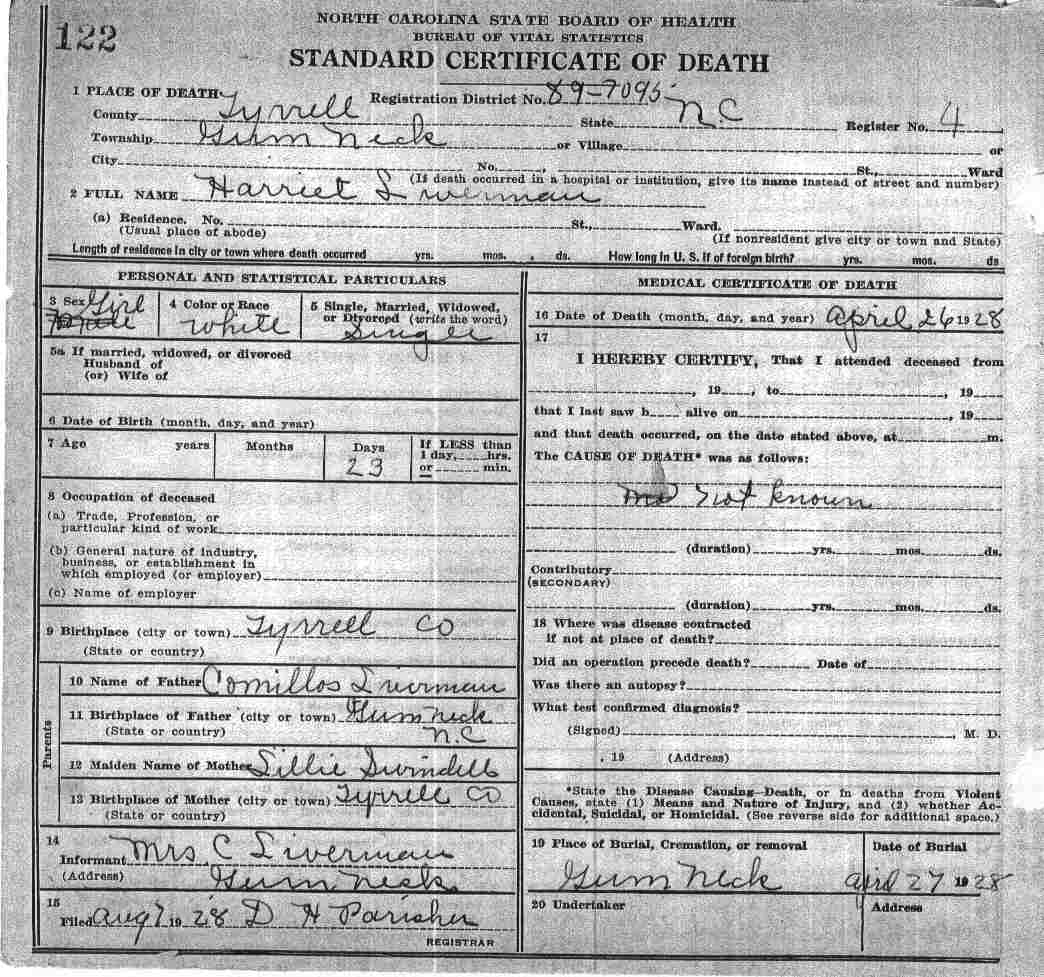 122
NORTH CAROLINA STATE BOARD OF HEALTH
BUREAU OF VITAL STATISTICS
STANDARD CERTIFICATE OF DEATH
1 PLACE OF DEATH Registration District No. 89-7095
County Tyrrell State N.C Register No. 4
Township Gum Neck or Village or
City No. St., Ward
(If death occurred in a hospital or institution, give its name instead of street and number)
2 FULL NAME Harriet Liverman
(a) Residence. No. St., Ward.
(Usual place of abode) (If nonresident give city or town and State)
Length of residence in city or town where death occurred yrs. mos. ds. How long in U. S. if of foreign birth? yrs. mos. ds
PERSONAL AND STATISTICAL PARTICULARS
3 Sex Girl
4 Color or Race
White
5 Single, Married, Widowed,
or Divorced (write the word)
Single
5a If married, widowed, or divorced
Husband of
(or) Wife of
6 Date of Birth (month, day, and year)
7 Age years Months Days If LESS than
1 day, hrs.
23 or min.
8 Occupation of deceased
(a) Trade, Profession, or
particular kind of work
(b) General nature of industry,
business, or establishment in
which employed (or employer)
(c) Name of employer
9 Birthplace (city or town) Tyrrell Co
(State or country)
Parents
10 Name of Father Comillos Liverman
11 Birthplace of Father (city or town) Gum Neck
(State or country) N.C
12 Maiden Name of Mother Lillie Swindell
13 Birthplace of Mother (city or town) Tyrrell Co
(State or country)
14
Informant Mrs C Liverman
(Address) Gum Neck
15
Filed Aug 7 19 28 D H Parisher
REGISTRAR
MEDICAL CERTIFICATE OF DEATH
16 Date of Death (month, day, and year) April 26 1928
17
I HEREBY CERTIFY, That I attended deceased from
, 19 , to , 19
that I last saw h alive on , 19
and that death occurred, on the date stated above, at m.
The CAUSE OF DEATH* was as follows:
Not known
(duration) yrs. mos. ds.
Contributory
(SECONDARY)
(duration) yrs. mos. ds.
18 Where was disease contracted
if not at place of death?
Did an operation precede death? Date of
Was there an autopsy?
What test confirmed diagnosis?
(Signed) , M. D.
, 19 (Address)
*State the Disease Causing Death, or in deaths from Violent
Causes, state (1) Means and Nature of Injury, and (2) whether Ac-
cidental, Suicidal, or Homicidal. (See reverse side for additional space.)
19 Place of Burial, Cremation, or removal Date of Burial
Gum Neck April 27 1928
20 Undertaker Address